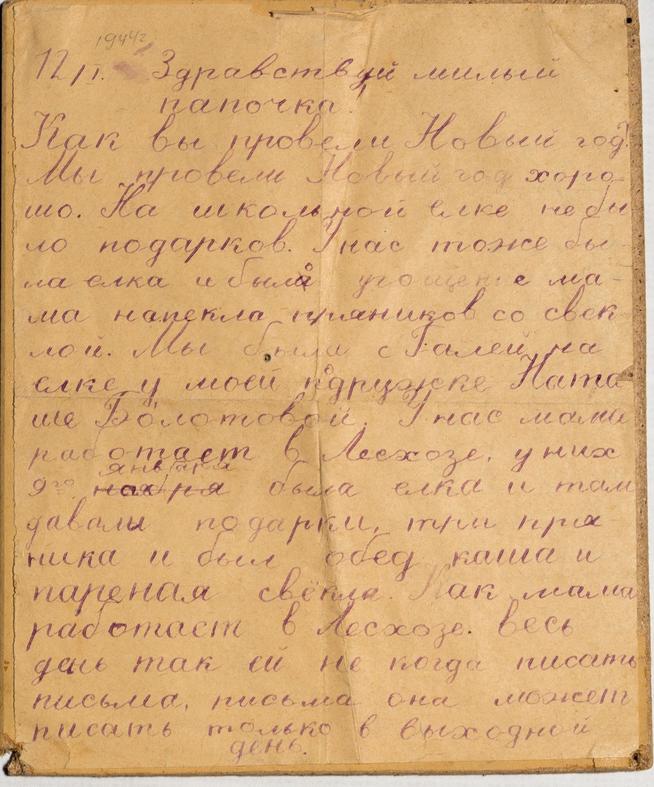 1944г
12/I. Здравствуй милый
папочка!
Как вы провели Новый год?
Мы провели Новый год хоро-
шо. На школьной елке не бы
ло подарков. У нас тоже бы-
ла елка и было угощение ма-
ма напекла пряников со свек
лой. Мы были с Галей на
елке у моей подружке Ната
ше Болотовой. У нас мама
работает в Лесхозе, у них
января
9го была елка и там
давали подарки, три пря-
ника и был обед каша и
пареная свёкла. Как мама
работает в Лесхозе. весь
день так ей не когда писать
письма, письма она может
писать только в выходной
день.